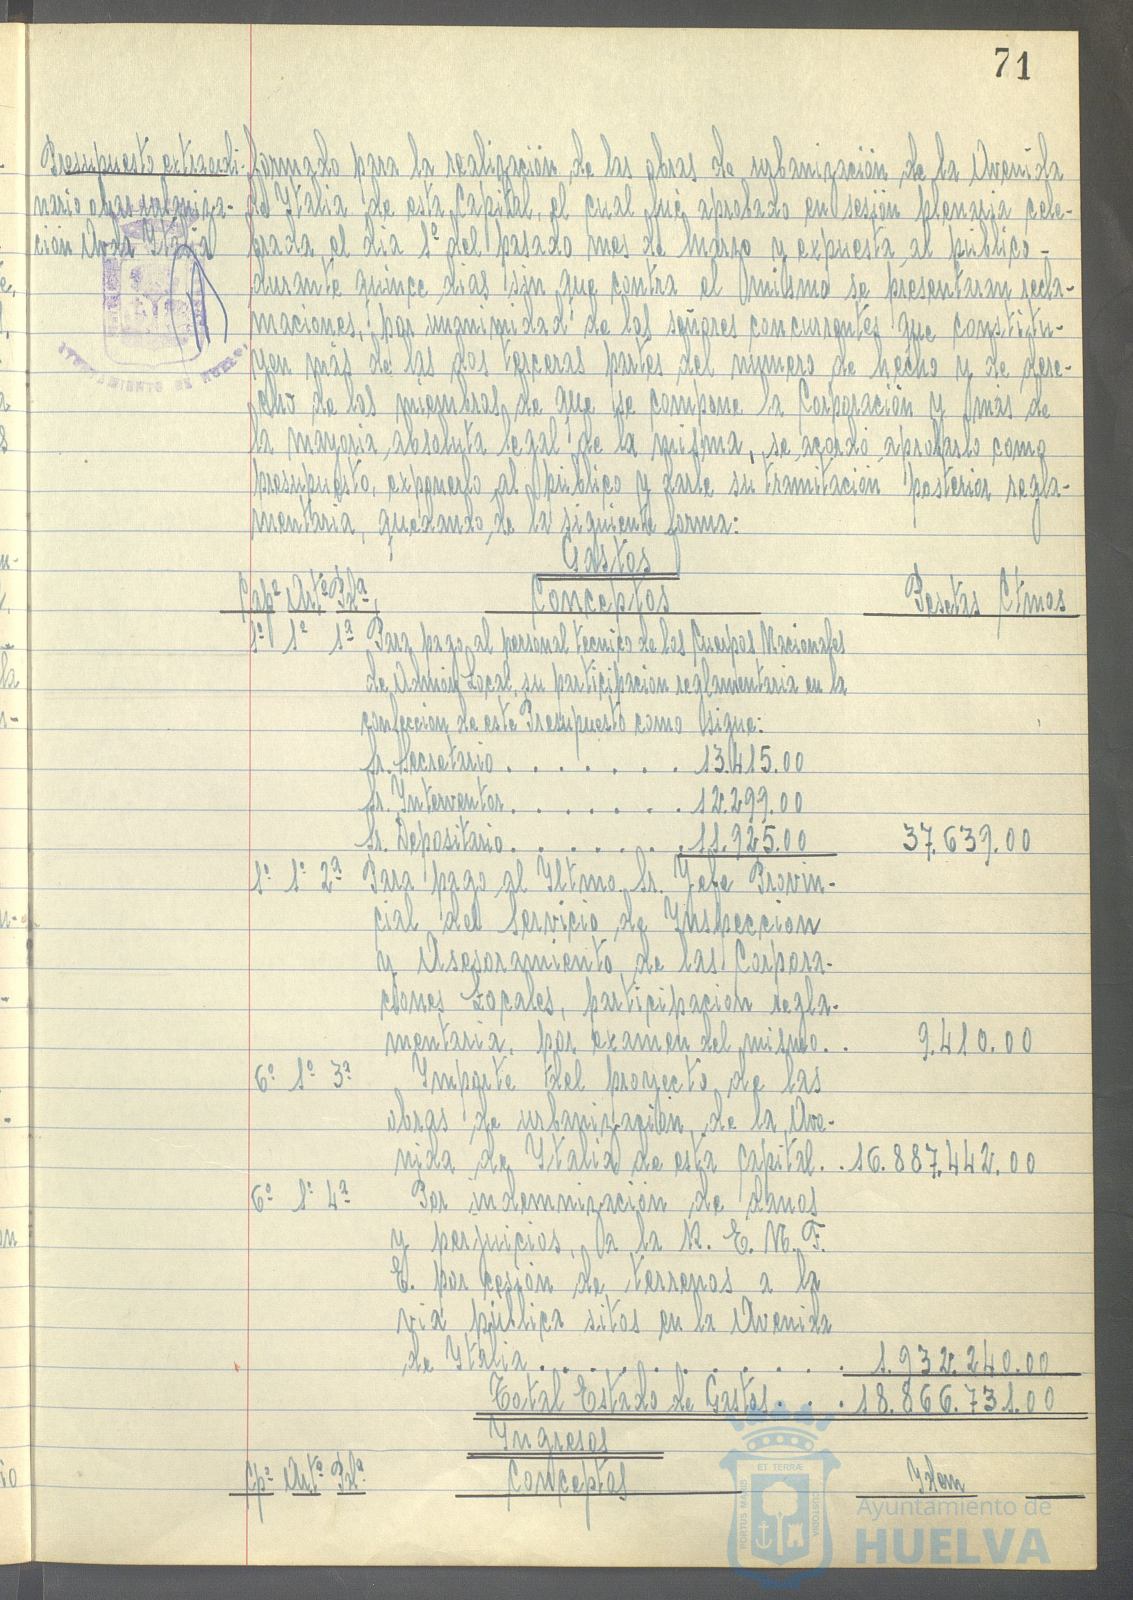 71
Presupuesto extraordi-
nario obras urbaniza-
ción Avda Italia
AYUNTAMIENTO DE HUELVA
formado para la realización de las obras de urbanización de la Avenida
de Italia de esta Capital, el cual fué aprobado en sesión plenaria cele-
brada el día 1º del pasado mes de Marzo y expuesta al público -
durante quince días sin que contra el mismo se presentaran recla-
maciones, por unanimidad de los señores concurrentes que constitu-
yen más de las dos terceras partes del número de hecho y de dere-
cho de los miembros de que se compone la Corporación y más de
la mayoria absoluta legal de la misma, se acordó aprobarlo como
presupuesto, exponerlo al público y darle su tramitación posterior regla-
mentaria, quedando de la siguiente forma:
Gastos
Capº Artº Pdª Conceptos Pesetas Ctmos
1º 1º 1ª Para pago al personal técnico de los Cuerpos Nacionales
de Admon Local, su participación reglamentaria en la
confección de este Presupuesto como sigue:
Sr. Secretario . . . . . . . 13.415.00
Sr. Interventor . . . . . . . 12.299.00
Sr. Depositario . . . . . . . 11.925.00 37.639.00
1º 1º 2ª Para pago al Iltmo. Sr. Jefe Provin-
cial del Servicio de Inspección
y Asesoramiento de las Corpora-
ciones Locales, participación regla-
mentaria, por examen del mismo. . 9.410.00
6º 1º 3ª Importe del proyecto de las
obras de urbanización de la Ave-
nida de Italia de esta capital. . 16.887.442.00
6º 1º 4ª Por indemnización de danos
y perjuicios, a la R. E. N. F.
E. por cesión de terrenos a la
via pública sitos en la Avenida
de Italia . . . . . . . . . . 1.932.240.00
Total Estado de Gastos. . . 18.866.731.00
Ingresos
Cpº Artº Pdª Conceptos Idem
PORTUS MARIS ET TERRÆ CUSTODIA
Ayuntamiento de
HUELVA